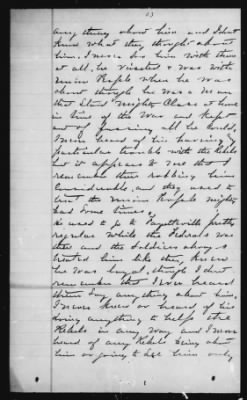 any thing about him and I dont
know what they thought about
him. I never see him with them
at all, he visited & was with
union People when he was
about though he was a man
that staid mighty close at home
in time of the war and kept
out of fussing all he could.
I never heard of his having
particular trouble with the Rebels
but it appears to me that I
remember their robbing him
Considerable, and they used to
treat the union People mighty
bad Some times,
He used to go to Fayetteville pretty
regular while the Federals was
there and the Soldiers always
treated him like they knew
he was loyal, though I dont
remember that I ever heard
them say any thing about him,
I never knew or heard of his
doing anything to help the
Rebels in any way and I never
heard of any Rebels being about
him or going to see him only